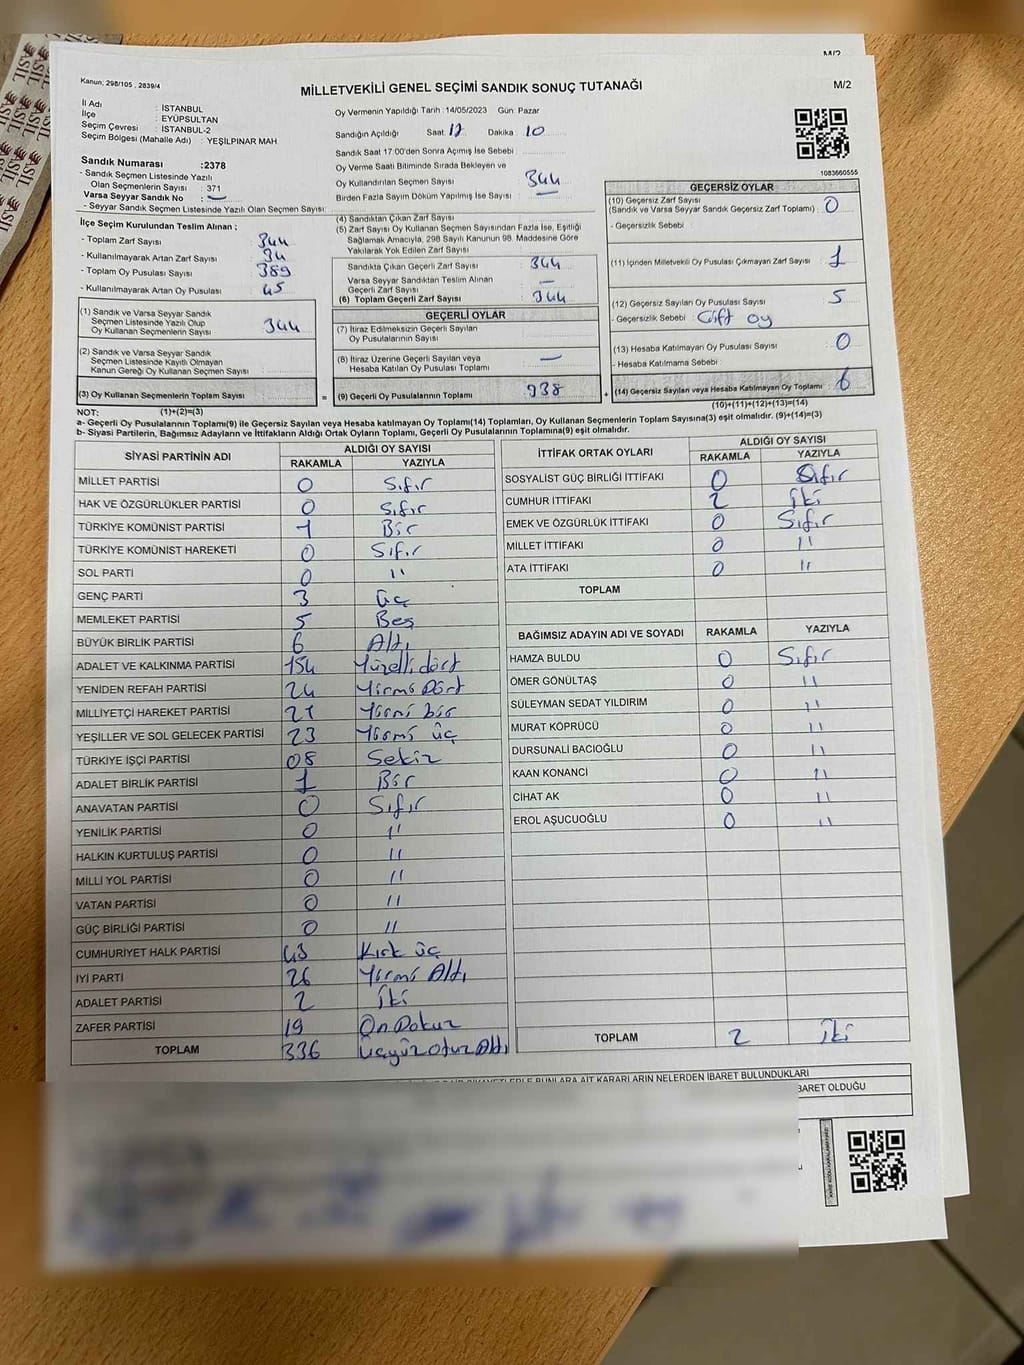 M/2
Kanun; 298/105 , 2839/4
MİLLETVEKİLİ GENEL SEÇİMİ SANDIK SONUÇ TUTANAĞI
M/2
İl Adı : İSTANBUL
İlçe : EYÜPSULTAN
Seçim Çevresi : İSTANBUL-2
Seçim Bölgesi (Mahalle Adı) : YEŞİLPINAR MAH
Sandık Numarası :2378
- Sandık Seçmen Listesinde Yazılı
Olan Seçmenlerin Sayısı : 371
Varsa Seyyar Sandık No : —
- Seyyar Sandık Seçmen Listesinde Yazılı Olan Seçmen Sayısı:
Oy Vermenin Yapıldığı Tarih :14/05/2023 Gün: Pazar
Sandığın Açıldığı Saat: 17 Dakika : 10
Sandık Saat 17:00'den Sonra Açımış İse Sebebi :
Oy Verme Saati Bitiminde Sırada Bekleyen ve
Oy Kullandırılan Seçmen Sayısı : 344
Birden Fazla Sayım Döküm Yapılmış İse Sayısı : —
1083660555
İlçe Seçim Kurulundan Teslim Alınan ;
- Toplam Zarf Sayısı : 344
- Kullanılmayarak Artan Zarf Sayısı : 34
- Toplam Oy Pusulası Sayısı : 389
- Kullanılmayarak Artan Oy Pusulası : 45
(1) Sandık ve Varsa Seyyar Sandık
Seçmen Listesinde Yazılı Olup
Oy Kullanan Seçmenlerin Sayısı : 344
(2) Sandık ve Varsa Seyyar Sandık
Seçmen Listesinde Kayıtlı Olmayan
Kanun Gereği Oy Kullanan Seçmen Sayısı :
(3) Oy Kullanan Seçmenlerin Toplam Sayısı :
(4) Sandıktan Çıkan Zarf Sayısı :
(5) Zarf Sayısı Oy Kullanan Seçmen Sayısından Fazla İse, Eşitliği
Sağlamak Amacıyla, 298 Sayılı Kanunun 98. Maddesine Göre
Yakılarak Yok Edilen Zarf Sayısı :
Sandıkta Çıkan Geçerli Zarf Sayısı : 344
Varsa Seyyar Sandıktan Teslim Alınan
Geçerli Zarf Sayısı : —
(6) Toplam Geçerli Zarf Sayısı : 344
GEÇERLİ OYLAR
(7) İtiraz Edilmeksizin Geçerli Sayılan
Oy Pusulası Toplamı :
(8) İtiraz Üzerine Geçerli Sayılan veya
Hesaba Katılan Oy Pusulası Toplamı : —
= (9) Geçerli Oy Pusulalarının Toplamı : 938
GEÇERSİZ OYLAR
(10) Geçersiz Zarf Sayısı
(Sandık ve Varsa Seyyar Sandık Geçersiz Zarf Toplamı) : 0
- Geçersizlik Sebebi :
(11) İçinden Milletvekili Oy Pusulası Çıkmayan Zarf Sayısı : 1
(12) Geçersiz Sayılan Oy Pusulası Sayısı : 5
- Geçersizlik Sebebi : Çift oy
(13) Hesaba Katılmayan Oy Pusulası Sayısı : 0
- Hesaba Katılmama Sebebi :
+ (14) Geçersiz Sayılan veya Hesaba Katılmayan Oy Toplamı : 6
(10)+(11)+(12)+(13)=(14)
NOT: (1)+(2)=(3)
a- Geçerli Oy Pusulalarının Toplamı(9) ile Geçersiz Sayılan veya Hesaba katılmayan Oy Toplamı(14) Toplamları, Oy Kullanan Seçmenlerin Toplam Sayısına(3) eşit olmalıdır. (9)+(14)=(3)
b- Siyasi Partilerin, Bağımsız Adayların ve İttifakların Aldığı Ortak Oyların Toplamı, Geçerli Oy Pusulalarının Toplamına(9) eşit olmalıdır.
SİYASİ PARTİNİN ADI ALDIĞI OY SAYISI
RAKAMLA YAZIYLA
MİLLET PARTİSİ 0 Sıfır
HAK VE ÖZGÜRLÜKLER PARTİSİ 0 Sıfır
TÜRKİYE KOMÜNİST PARTİSİ 1 Bir
TÜRKİYE KOMÜNİST HAREKETİ 0 Sıfır
SOL PARTİ 0 "
GENÇ PARTİ 3 üç
MEMLEKET PARTİSİ 5 Beş
BÜYÜK BİRLİK PARTİSİ 6 Altı
ADALET VE KALKINMA PARTİSİ 154 Yüzellidört
YENİDEN REFAH PARTİSİ 24 Yirmi Dört
MİLLİYETÇİ HAREKET PARTİSİ 21 Yirmi bir
YEŞİLLER VE SOL GELECEK PARTİSİ 23 Yirmi üç
TÜRKİYE İŞÇİ PARTİSİ 08 Sekiz
ADALET BİRLİK PARTİSİ 1 Bir
ANAVATAN PARTİSİ 0 Sıfır
YENİLİK PARTİSİ 0 "
HALKIN KURTULUŞ PARTİSİ 0 "
MİLLİ YOL PARTİSİ 0 "
VATAN PARTİSİ 0 "
GÜÇ BİRLİĞİ PARTİSİ 0 "
CUMHURİYET HALK PARTİSİ 43 Kırk üç
İYİ PARTİ 26 Yirmi Altı
ADALET PARTİSİ 2 İki
ZAFER PARTİSİ 19 On Dokuz
TOPLAM 336 Üçyüz otuz Altı
İTTİFAK ORTAK OYLARI ALDIĞI OY SAYISI
RAKAMLA YAZIYLA
SOSYALİST GÜÇ BİRLİĞİ İTTİFAKI 0 Sıfır
CUMHUR İTTİFAKI 2 İki
EMEK VE ÖZGÜRLÜK İTTİFAKI 0 Sıfır
MİLLET İTTİFAKI 0 "
ATA İTTİFAKI 0 "
TOPLAM
BAĞIMSIZ ADAYIN ADI VE SOYADI RAKAMLA YAZIYLA
HAMZA BULDU 0 Sıfır
ÖMER GÖNÜLTAŞ 0 "
SÜLEYMAN SEDAT YILDIRIM 0 "
MURAT KÖPRÜCÜ 0 "
DURSUNALİ BACIOĞLU 0 "
KAAN KONANCİ 0 "
CİHAT AK 0 "
EROL AŞUCUOĞLU 0 "
TOPLAM 2 İki
BUNLARA AİT KARARLARIN NELERDEN İBARET BULUNDUKLARI
BARET OLDUĞU
ASIL